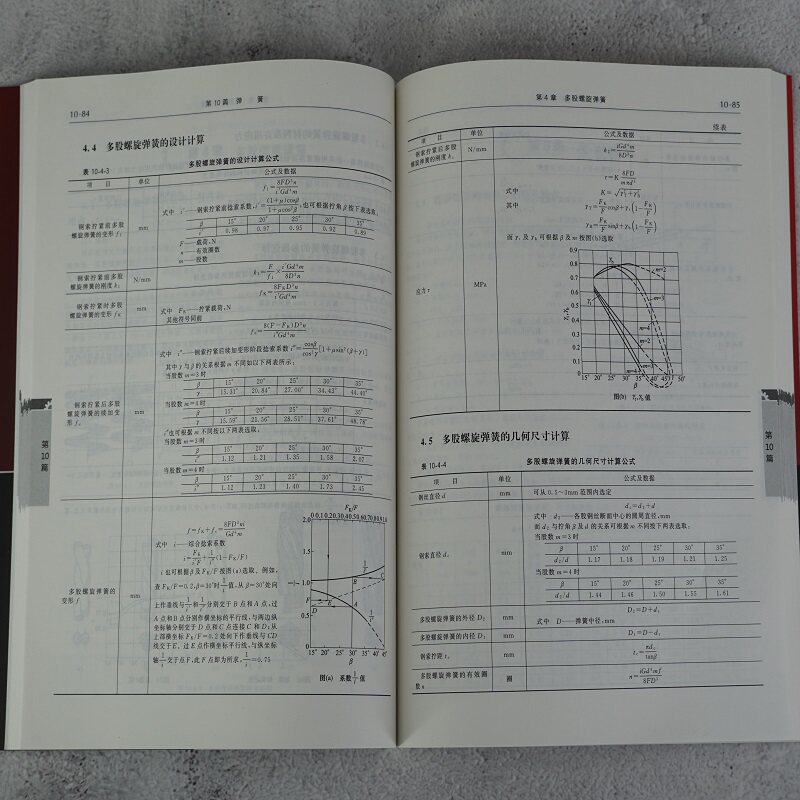 10-84
第10篇 弹 簧
4.4 多股螺旋弹簧的设计计算
表 10-4-3
多股螺旋弹簧的设计计算公式
项 目 单位 公式及数据
钢索拧紧前多股
螺旋弹簧的变形 f₁
mm
f₁=8FD³n/(i′Gd⁴m)
式中 i′——钢索拧紧前捻索系数,i′=(1+μ)cosβ/(1+μcos²β),也可根据拧角β按下表选取:
β 15° 20° 25° 30° 35°
i′ 0.98 0.97 0.95 0.92 0.89
F——载荷,N
n——有效圈数
m——股数
钢索拧紧前多股
螺旋弹簧的刚度 k₁
N/mm
钢索拧紧时多股
螺旋弹簧的变形 fK
mm
fK=8FKD³n/(i′Gd⁴m)
式中 FK——拧紧载荷,N
其他符号同前
钢索拧紧后多股
螺旋弹簧的续加变
形 fᵣ
mm
fᵣ=8(F−FK)D³n/(i″Gd⁴m)
式中 i″——钢索拧紧后续加变形阶段捻索系数 i″=cosβ/cos²γ[1+μsin²(β+γ)]
其中γ与β的关系根据 m 不同如以下两表所示:
当股数 m=3 时
β 15° 20° 25° 30° 35°
γ 15.31° 20.84° 27.00° 34.43° 44.40°
当股数 m=4 时
β 15° 20° 25° 30° 35°
γ 15.59° 21.56° 28.51° 37.61° 48.78°
i″也可根据 m 不同按以下两表选取,
当股数 m=3 时
β 15° 20° 25° 30° 35°
i″ 1.12 1.21 1.35 1.58 2.07
当股数 m=4 时
β 15° 20° 25° 30° 35°
i″ 1.12 1.23 1.40 1.73 2.45
多股螺旋弹簧的
变形 f
mm
f=fK+fᵣ=8FD³ni/(Gd⁴m)
式中 i——综合捻索系数
i 也可根据β及FK/F 按图(a)选取。例如,
查FK/F=0.2,β=30°时1/i值,从β=30°处向
上作垂线与1/i′和1/i″分别交于B点和A点,过
A点和B点分别作横坐标的平行线,与两边纵
坐标轴分别交于D点和C点连接C和D;从
上部横坐标FK/F=0.2处向下作垂线与CD
线交于E,过E点作横坐标平行线,与纵坐标
轴1/i交于点F,此F点即为所求,1/i=0.75
FK/F
0 0.1 0.2 0.3 0.4 0.5 0.6 0.7 0.8 0.9 1.0
2.0
1.0
0.5
0
15° 20° 25° 30° 35° 40° 45°
β
图(a) 系数1/i值
第
10
篇
第4章 多股螺旋弹簧
10-85
续表
项 目 单位 公式及数据
钢索拧紧后多股
螺旋弹簧的刚度 kᵣ
N/mm
应力 τ
MPa
τ=K 8FD/(mπd³)
式中 K=√(γT²+γb²)
其中
图(b) γT,γb值
0.9
0.8
0.7
0.6
0.5
0.4
0.3
0.2
0.1
0
15° 20° 25° 30° 35° 40° 45° 50°
β
4.5 多股螺旋弹簧的几何尺寸计算
表 10-4-4
多股螺旋弹簧的几何尺寸计算公式
项 目 单位 公式及数据
钢丝直径 d mm 可从 0.5~3mm 范围内选定
钢索直径 dc
mm
dc=d₂+d
式中 d₂——各股钢丝断面中心的圆周直径,mm
而 d₂ 与拧角β及 d 的关系可根据 m 不同按下两表选取:
当股数 m=3 时
β 15° 20° 25° 30° 35°
d₂/d 1.17 1.18 1.19 1.21 1.25
当股数 m=4 时
β 15° 20° 25° 30° 35°
d₂/d 1.44 1.46 1.50 1.55 1.61
多股螺旋弹簧的外径 D₂ mm D₂=D+dc
式中 D——弹簧中径,mm
多股螺旋弹簧的内径 D₁ mm D₁=D−dc
钢索拧距 tc mm tc=πd₂/tanβ
多股螺旋弹簧的有效圈
数 n
圈
n=iGd⁴mf/(8FD³)
第
10
篇